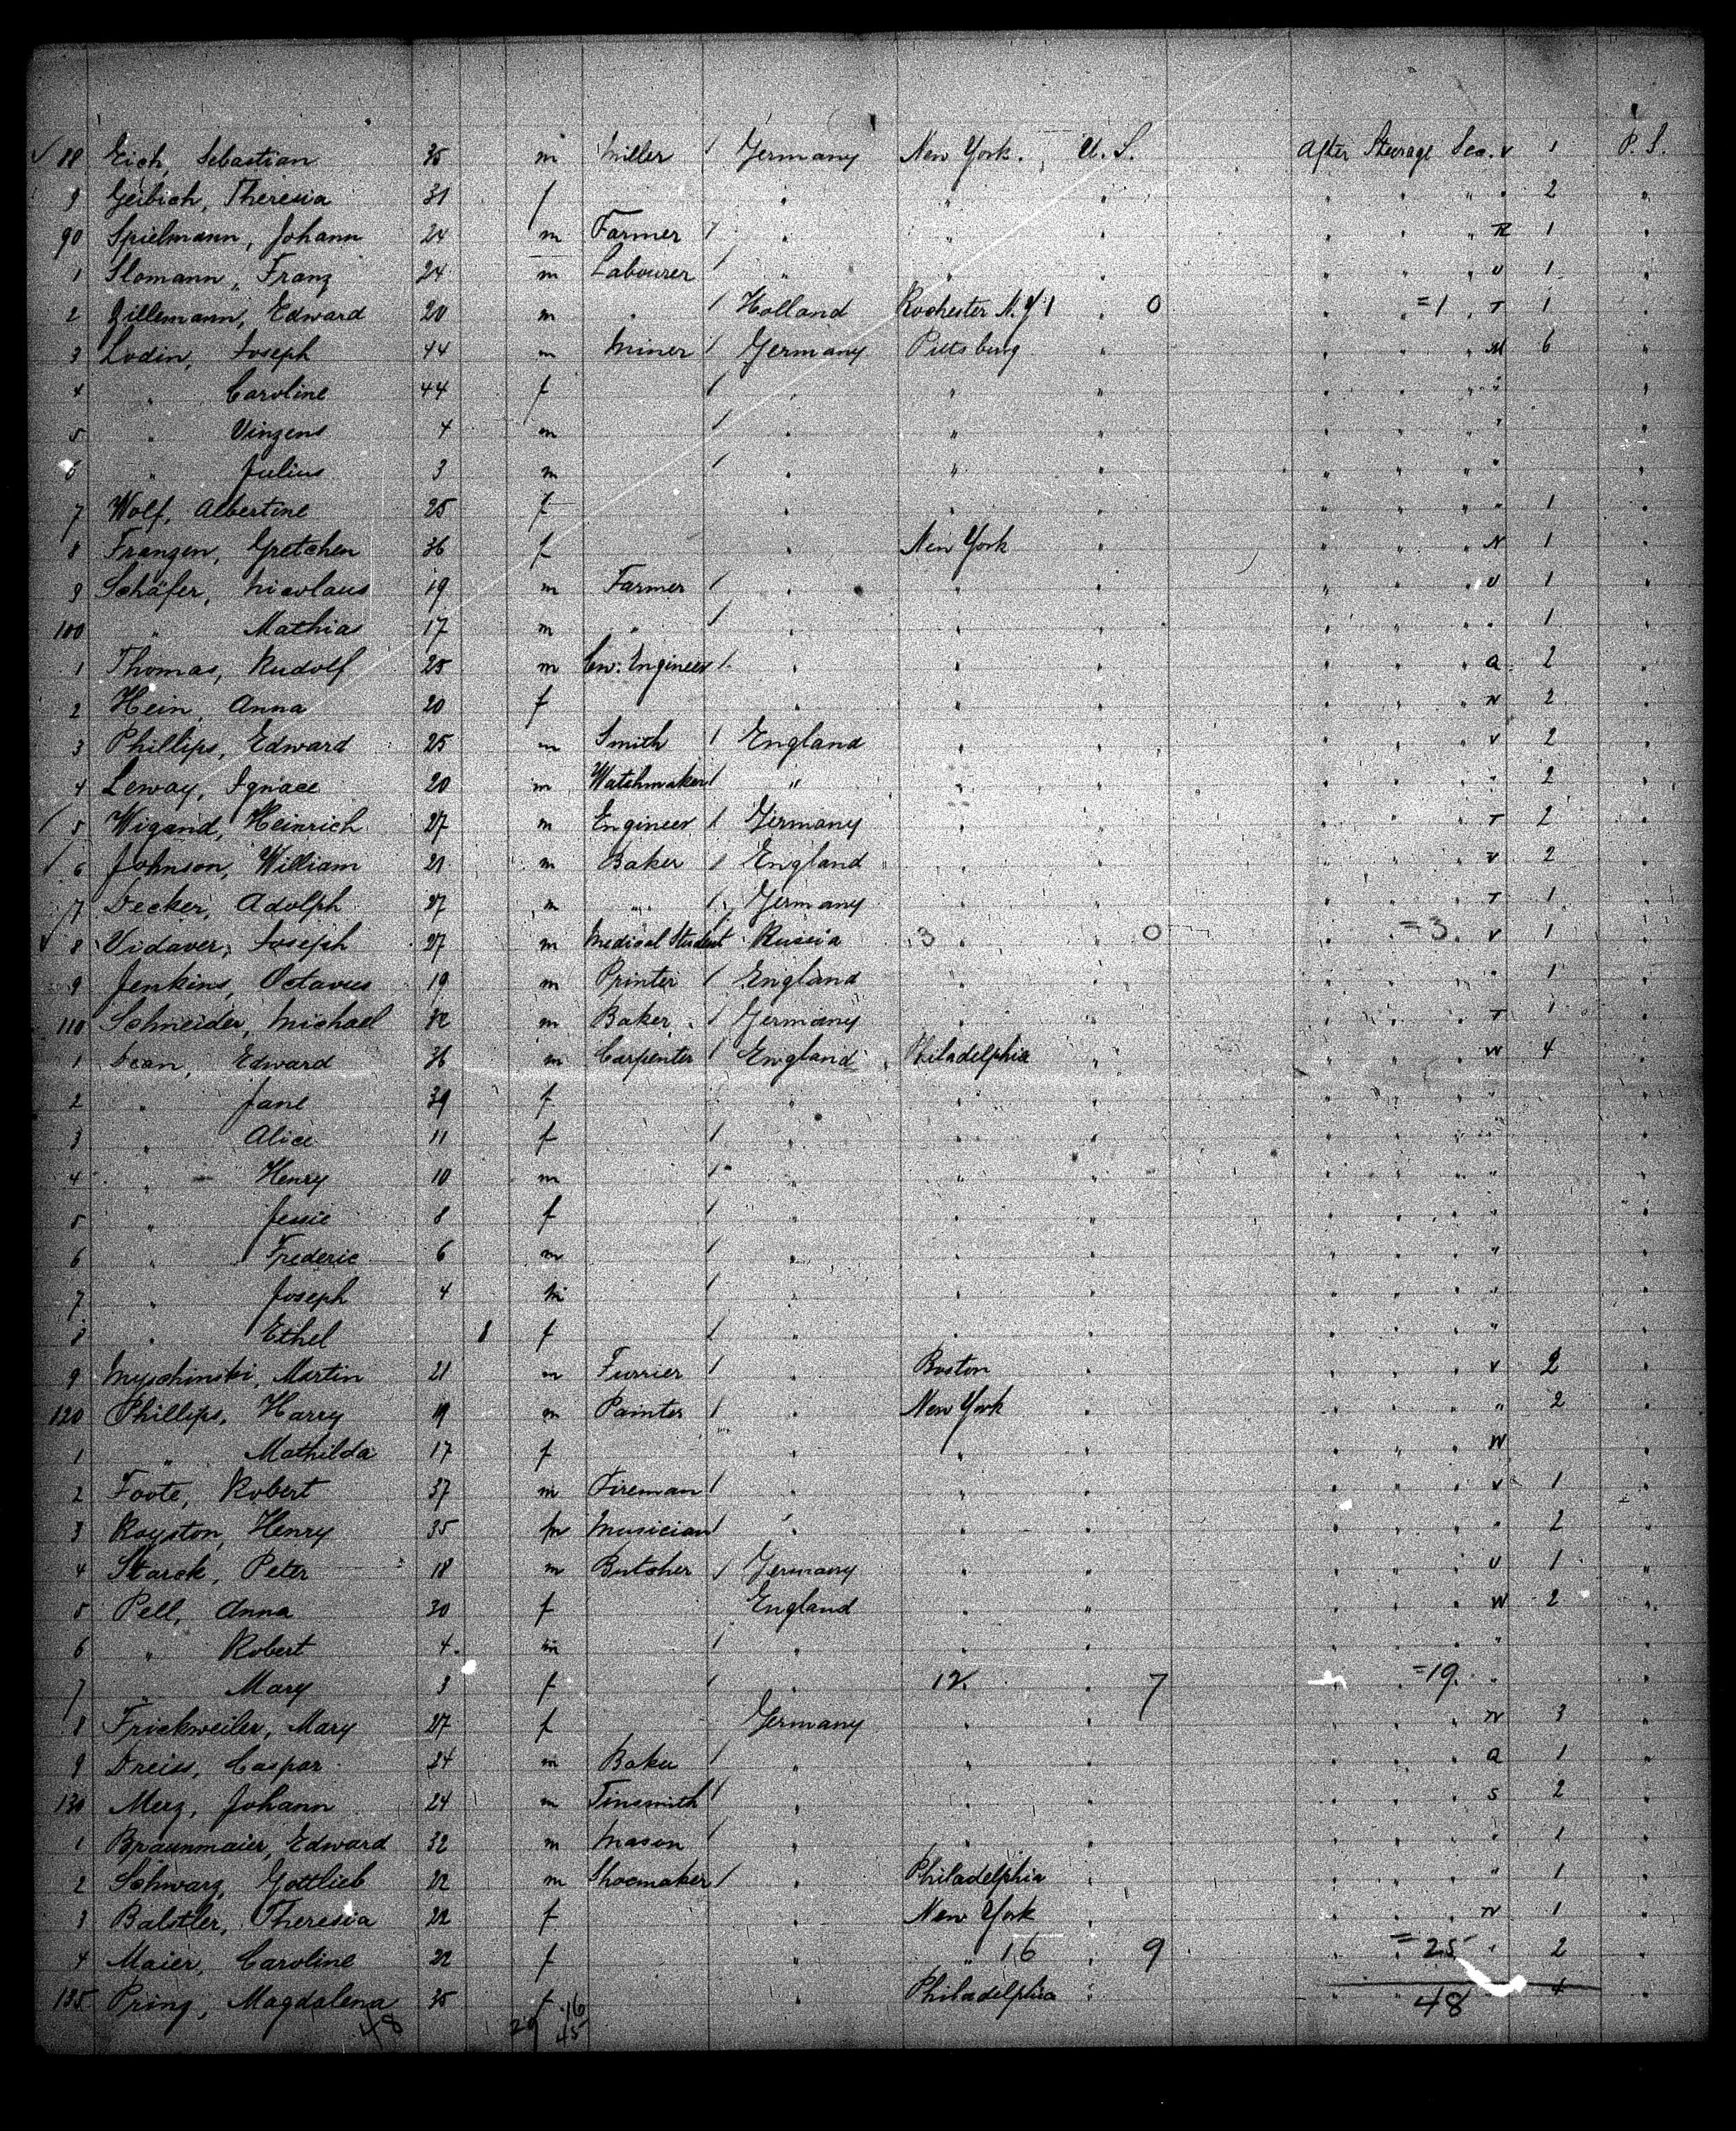 ✓ 88 Eich, Sebastian 35 m Miller / Germany New York. U.S. After Steerage Sec. V 1 P.S.
9 Geibich, Theresia 31 f " " " " " " " 2 "
90 Spielmann, Johann 24 m Farmer / " " " " " " R 1 "
1 Slomann, Franz 24 m Labourer / " " " " " " U 1 "
2 Zillemann, Edward 20 m " / Holland Rochester N.Y 1 " 0 " =1 " T 1 "
3 Lodin, Joseph 44 m Miner / Germany Pittsburg " " " " M 6 "
4 " Caroline 44 f / " " " " " " " "
5 " Vinzens 4 m / " " " " " " " "
6 " Julius 3 m / " " " " " " " "
7 Wolf, Albertine 25 f " " " " " " " 1 "
8 Franzen, Gretchen 36 f " New York " " " " N 1 "
9 Schäfer, Nicolaus 19 m Farmer / " " " " " " U 1 "
100 " Mathias 17 m " / " " " " " " " 1 "
1 Thomas, Rudolf 25 m Civ. Engineer / " " " " " " Q 2 "
2 Hein, Anna 20 f " " " " " " N 2 "
3 Phillips, Edward 25 m Smith / England " " " " " V 2 "
4 Leway, Ignace 20 m Watchmaker / " " " " " " " 2 "
/ 5 Wigand, Heinrich 27 m Engineer / Germany " " " " " T 2 "
/ 6 Johnson, William 21 m Baker / England " " " " " V 2 "
7 Decker, Adolph 27 m " / Germany " " " " " T 1 "
✓ 8 Vidaver, Joseph 27 m Medical Student Russia 3 " " 0 " =3 " V 1 "
9 Jenkins, Octavus 19 m Printer / England " " " " " " 1 "
110 Schneider, Michael 32 m Baker / Germany " " " " " T 1 "
1 Dean, Edward 36 m Carpenter / England Philadelphia " " " " W 4 "
2 " Jane 39 f " " " " " " " "
3 " Alice 11 f / " " " " " " " "
4 " Henry 10 m / " " " " " " " "
5 " Jessie 8 f / " " " " " " " "
6 " Frederic 6 m / " " " " " " " "
7 " Joseph 4 m / " " " " " " " "
8 " Ethel 8 f / " " " " " " " "
9 Myschinski, Martin 21 m Furrier / " Boston " " " " V 2 "
120 Phillips, Harry 19 m Painter / " New York " " " " " 2 "
1 " Mathilda 17 f " " " " " " W "
2 Foote, Robert 37 m Fireman / " " " " " " V 1 "
3 Royston, Henry 35 m Musician / " " " " " " " 2 "
4 Starck, Peter 18 m Butcher / Germany " " " " " U 1 "
5 Pell, Anna 30 f England " " " " " W 2 "
6 " Robert 4 m / " " " " " " " "
7 " Mary 3 f / " 12. " 7 " =19. " "
8 Frickweiler, Mary 27 f Germany " " " " " N 3 "
9 Dreiss, Caspar 24 m Baker / " " " " " " Q 1 "
130 Merz, Johann 24 m Tinsmith / " " " " " " S 2 "
1 Braunmaier, Edward 32 m Mason / " " " " " " " 1 "
2 Schwarz, Gottlieb 22 m Shoemaker / " Philadelphia " " " " " 1 "
3 Balstler, Theresia 22 f " New York " " " " N 1 "
4 Maier, Caroline 22 f " " 16 " 9 " =25 " 2 "
135 Prinz, Magdalena 35 f " Philadelphia " " " 48 4 "
48 29 16
45